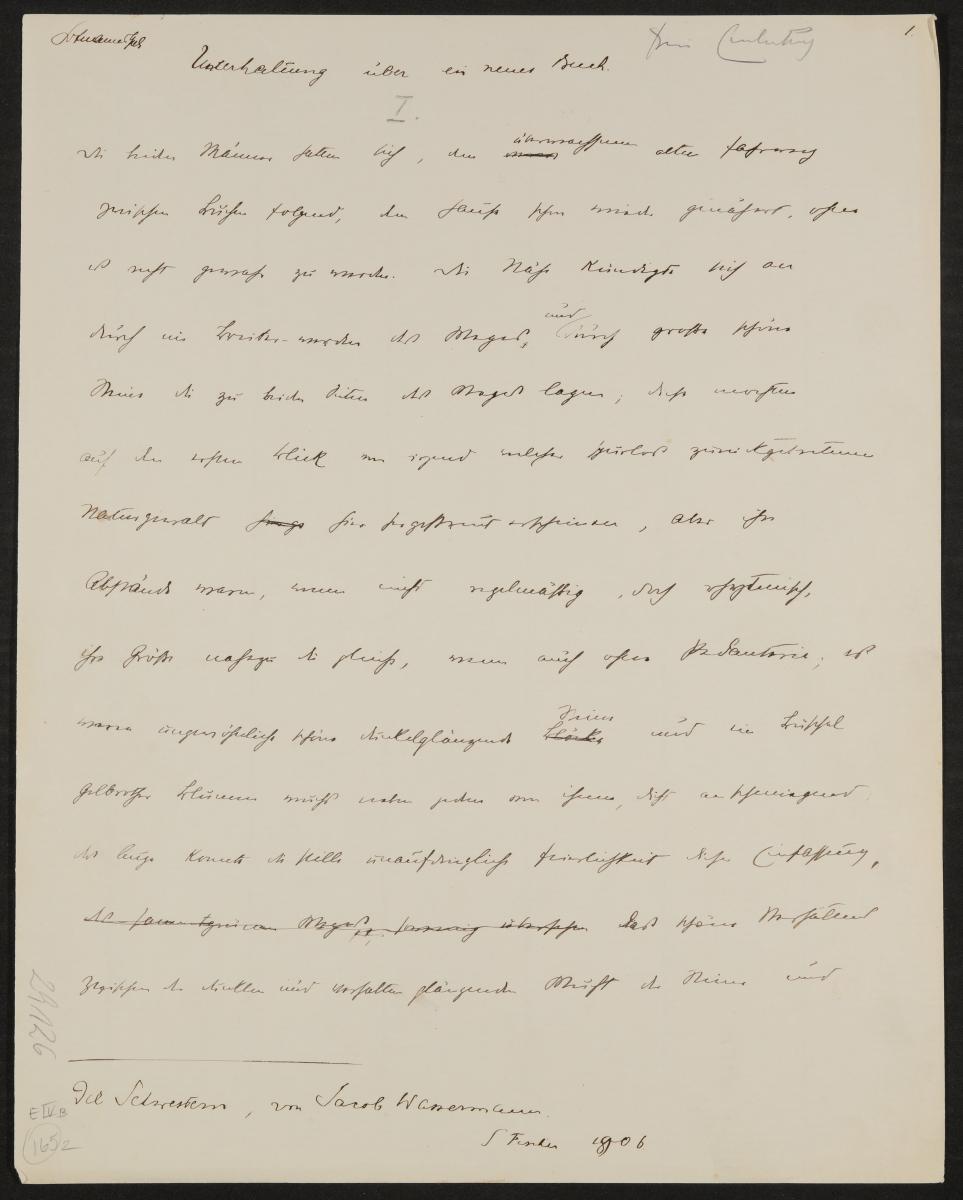 1.
Unterhaltung über ein neues Buch.
I.
Die beiden Männer hatten sich, dem überwachsenen alten Fahrweg
zwischen Buchen folgend, dem Hause schon wieder genähert, ohne
es recht gewahr zu werden. Die Nähe kündigte sich an
durch ein Breiter-werden des Weges, und durch große schöne
Steine die zu beiden Seiten des Weges lagen; diese mochten
auf den ersten Blick von irgend welcher spurlos zurückgetretenen
Naturgewalt hier hergestreut erscheinen, aber ihre
Abstände waren, wenn nicht regelmäßig, doch rhythmisch,
ihre Größe nahezu die gleiche, wenn auch ohne Pedanterie; es
waren ungewöhnlich schöne dunkelglänzende Steine und ein Büschel
gelbrother Blumen wuchs neben jedem von ihnen, dicht anschmiegend.
Das Auge konnte die stille unaufdringliche Feierlichkeit dieser Einfassung,
das schöne Verhältnis
zwischen der dunklen und verhalten glänzenden Wucht der Steine und
Die Schwestern, von Jacob Wassermann.
S Fischer 1906
29/126
E IV B
165 2